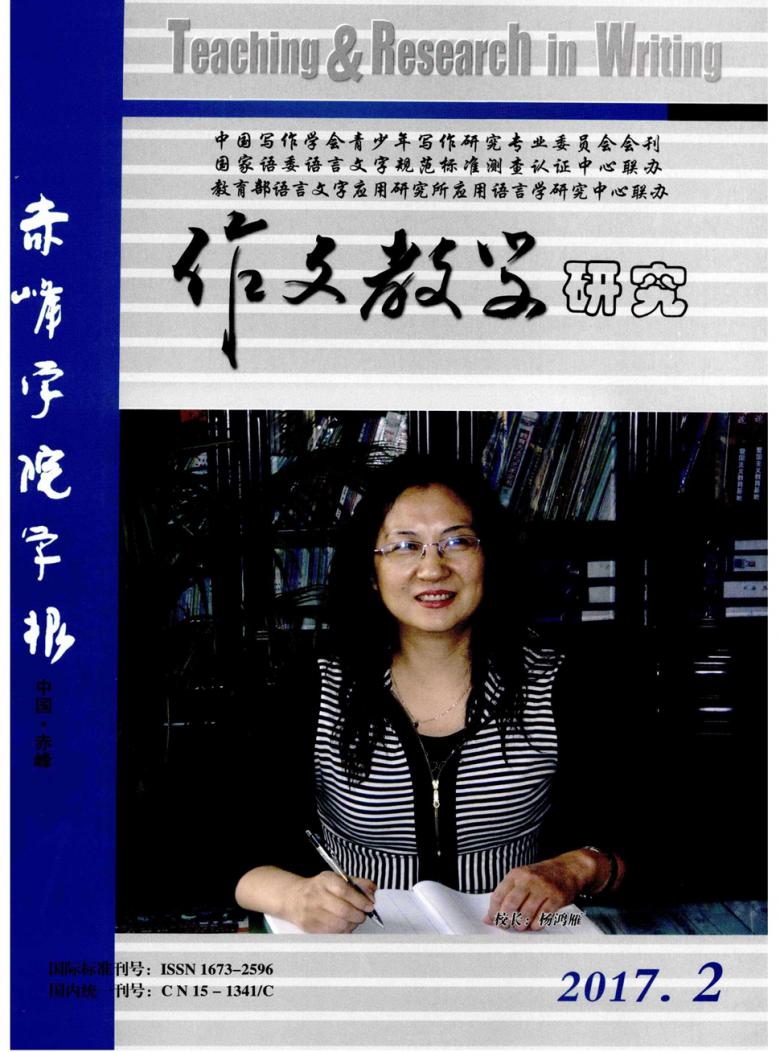 Teaching & Research in Writing
中国写作学会青少年写作研究专业委员会会刊
国家语委语言文字规范标准测查认证中心联办
教育部语言文字应用研究所应用语言学研究中心联办
作文教学研究
赤峰学院学报
中国·赤峰
校长：杨鸿雁
国际标准刊号：ISSN 1673-2596
国内统一刊号：CN 15-1341/C
2017.2